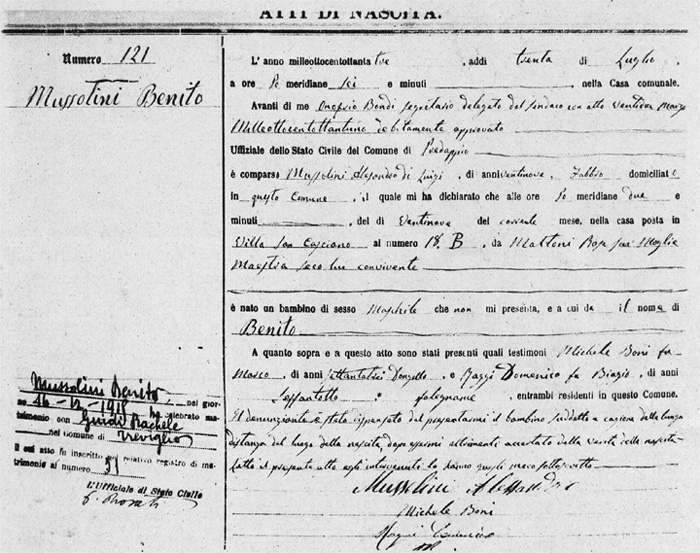 ATTI DI NASCITA.
Numero 121
Mussolini Benito
L' anno milleottocentottanta tre, addì trenta di Luglio,
a ore Po meridiane sei e minuti, nella Casa comunale.
Avanti di me Bondi segretario delegato dal sindaco con atto Ventidue Marzo
Milleottocentottantuno debitamente approvato
Uffiziale dello Stato Civile del Comune di Predappio
è comparso Mussolini Alessandro di Luigi, di anni ventinove, Fabbro domiciliato
in questo Comune, il quale mi ha dichiarato che alle ore Po meridiane due e
minuti, del dì Ventinove del corrente mese, nella casa posta in
Villa San Casciano al numero 18. B, da Maltoni Rosa sua Moglie
Maestra seco lui convivente
è nato un bambino di sesso Maschile che non mi presenta, e a cui da il nome di
Benito
A quanto sopra e a questo atto sono stati presenti quali testimoni Michele Boni fu
Marco, di anni e Domenico fu Biagio, di anni
Sessantotto, falegname, entrambi residenti in questo Comune.
Il denunziante è stato dispensato dal presentarmi il bambino suddetto a cagione della lunga
distanza dal luogo della nascita, dopo essermi altrimenti accertato della verità della nascita
Fatto il presente atto agli intervenuti lo hanno quegli meco sottoscritto
Mussolini Alessandro
Michele Boni
Mussolini Benito, nel gior-
no 16-12-1915 ha celebrato ma-
trimonio con Guidi Rachele
nel Comune di Treviglio
Il cui atto fu inscritto nel relativo registro di ma-
trimonio al numero 51
L'Ufficiale di Stato Civile